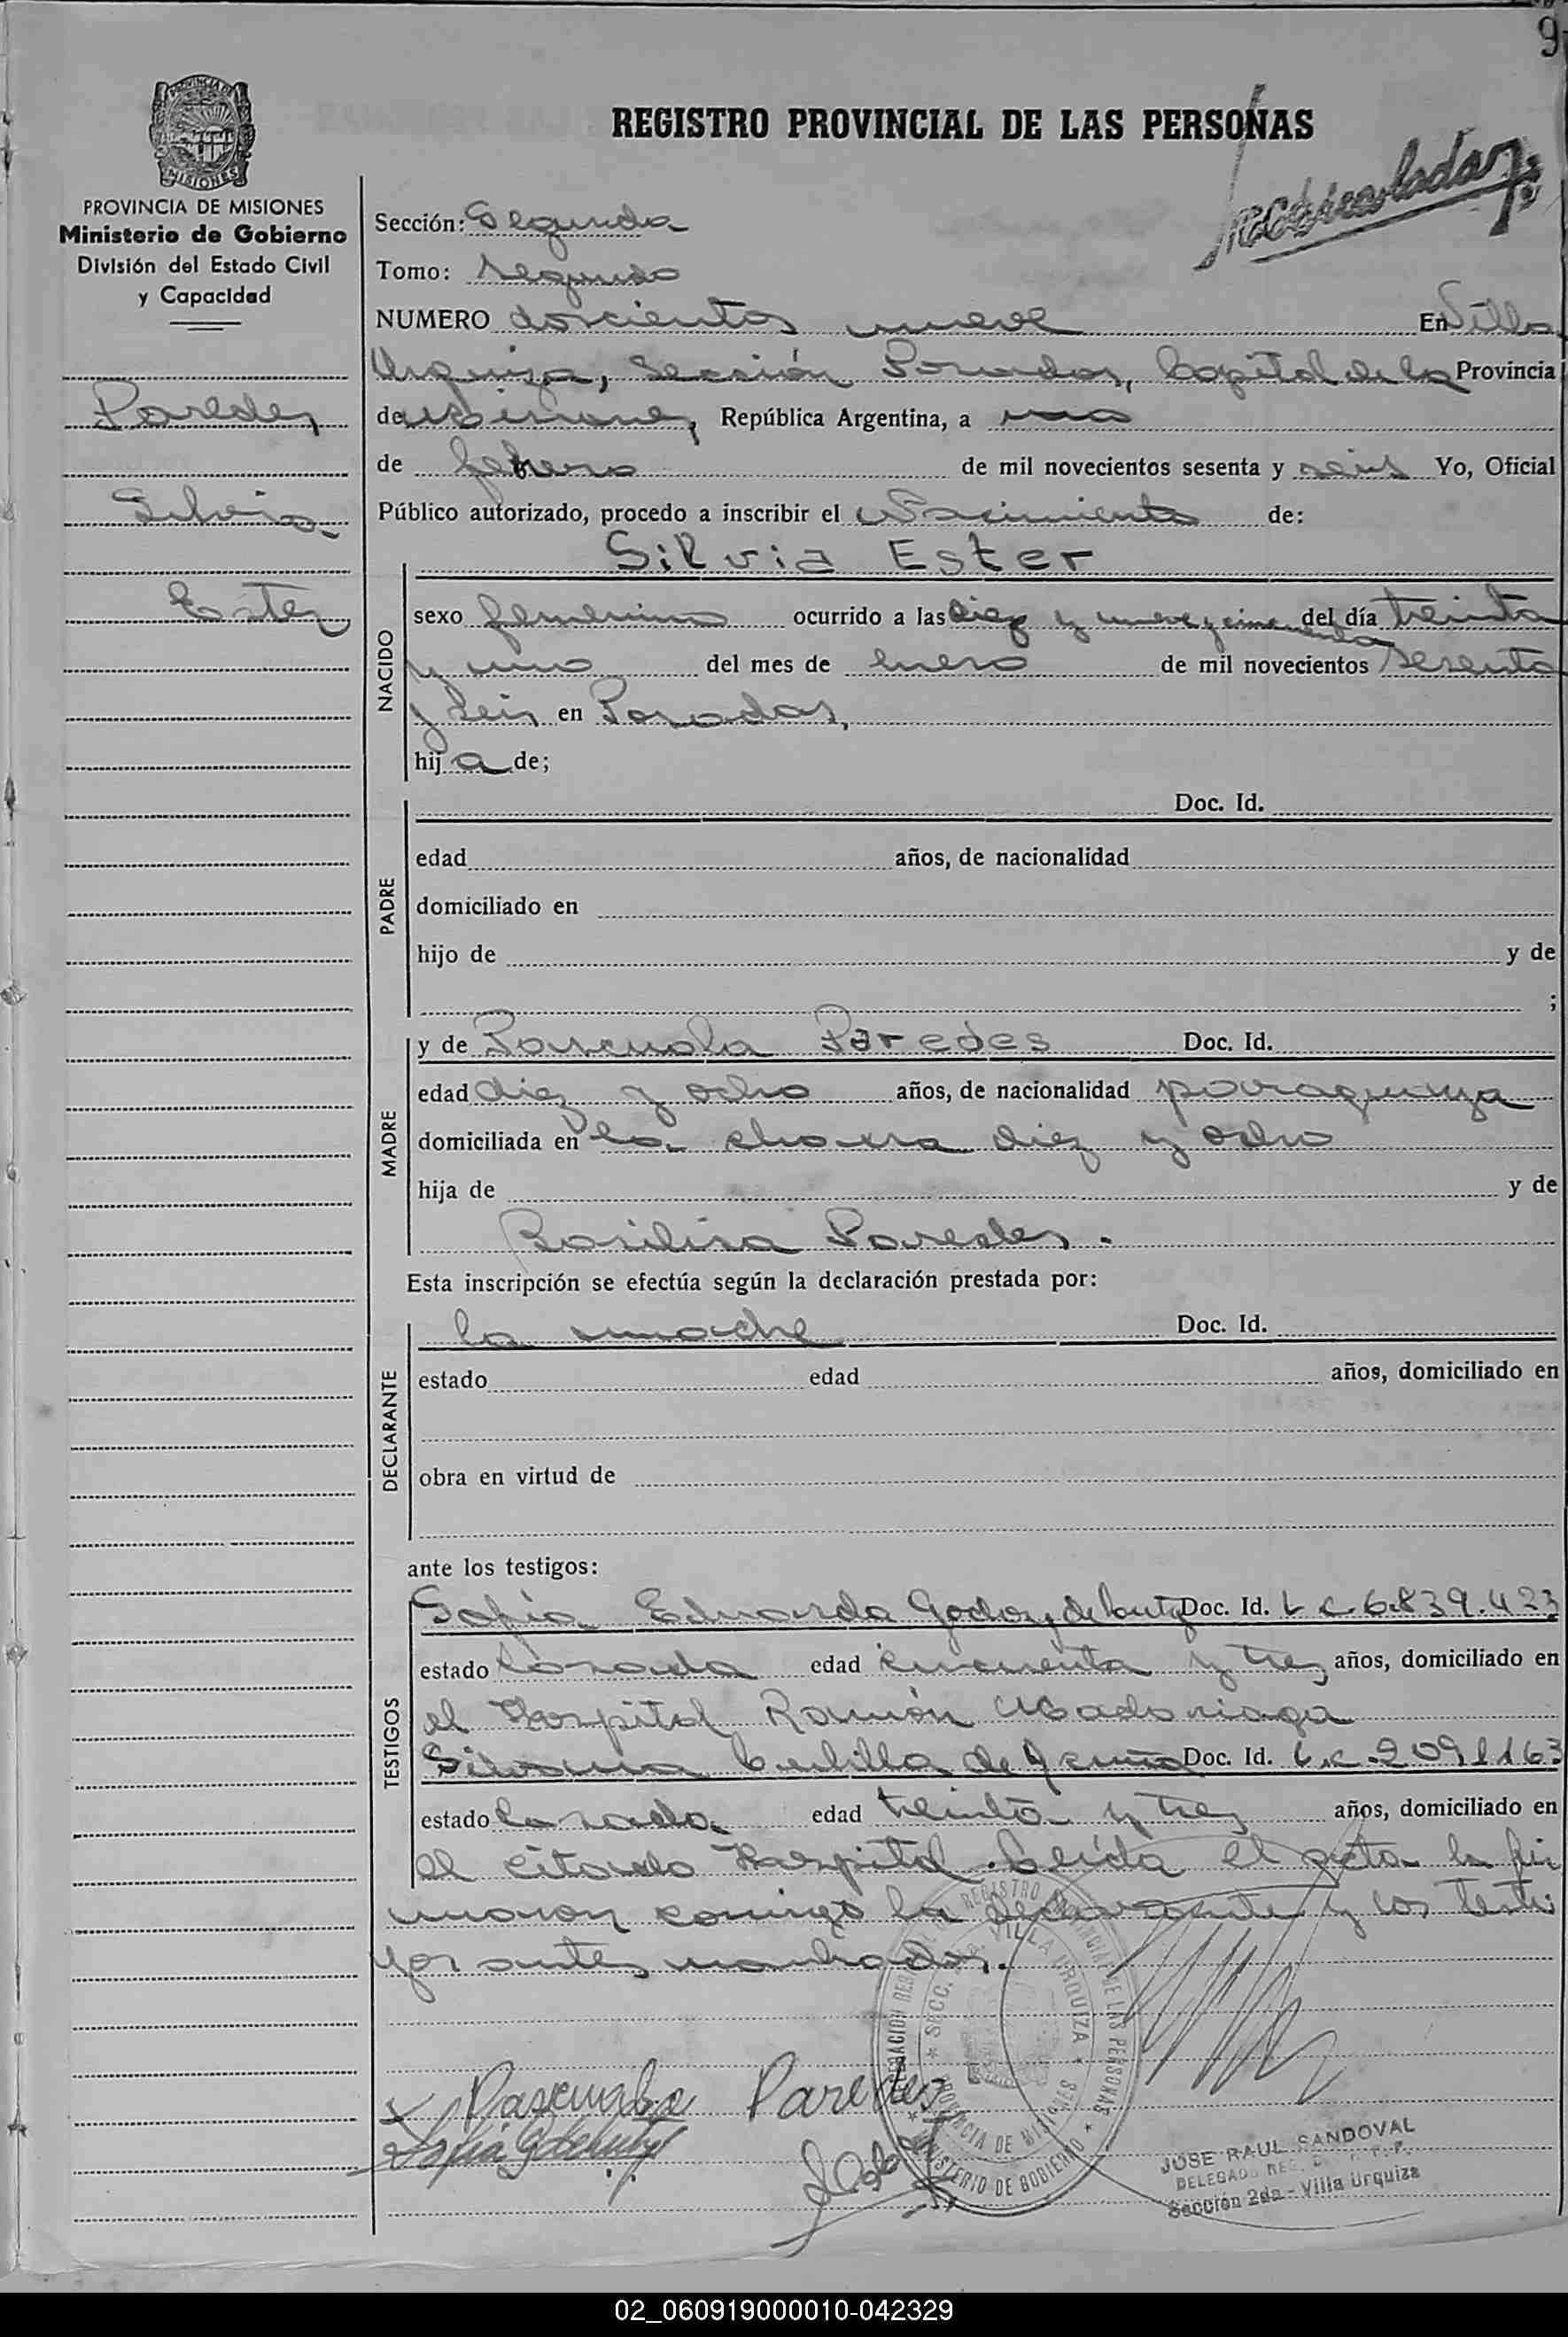 9
REGISTRO PROVINCIAL DE LAS PERSONAS
PROVINCIA DE MISIONES
Ministerio de Gobierno
División del Estado Civil
y Capacidad
Paredes
Silvia
Ester
Sección: Segunda
Tomo: segundo
NUMERO doscientos nueve En Villa
Urquiza, Sección Posadas, Capital de la Provincia
de Misiones, República Argentina, a uno
de febrero de mil novecientos sesenta y seis Yo, Oficial
Público autorizado, procedo a inscribir el Nacimiento de:
Silvia Ester
NACIDO
sexo femenino ocurrido a las diez y nueve y cincuenta del día treinta
y uno del mes de enero de mil novecientos sesenta
y seis en Posadas,
hija de;
PADRE
Doc. Id.
edad años, de nacionalidad
domiciliado en
hijo de y de
;
MADRE
y de Pascuala Paredes Doc. Id.
edad diez y ocho años, de nacionalidad paraguaya
domiciliada en la chacra diez y ocho
hija de y de
Basilisa Paredes.
Esta inscripción se efectúa según la declaración prestada por:
DECLARANTE
la madre Doc. Id.
estado edad años, domiciliado en
obra en virtud de
ante los testigos:
TESTIGOS
Sofía Eduarda Godoy de Doc. Id. L.C. 6.839.423
estado Casada edad cincuenta y tres años, domiciliado en
el Hospital Ramón Madariaga
Silvana de Acuña Doc. Id. L.C. 2091163
estado Casada edad treinta y tres años, domiciliado en
el citado Hospital. Leída el acta la fir
maron conmigo la declarante y los testi
gos antes nombrados.
Pascuala Paredes
Sofia G de
REGISTRO PROVINCIAL DE LAS PERSONAS
SECC. VILLA URQUIZA
PROVINCIA DE MISIONES
MINISTERIO DE GOBIERNO
JOSE RAUL SANDOVAL
Sección 2da - Villa Urquiza
02_060919000010-042329